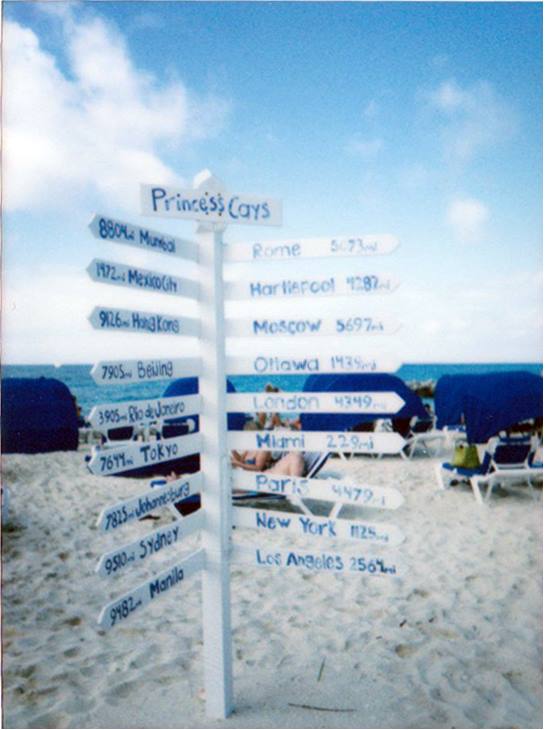 Princess Cays
8804mi Mumbai
1472mi Mexico City
9126mi Hong Kong
7905mi Beijing
3905mi Rio de Janeiro
7644mi TOKYO
7825mi Johannesburg
9510mi Sydney
9482mi Manila
Rome 5073mi
Hartlepool 4287mi
Moscow 5697mi
Ottawa 1439mi
London 4349mi
Miami 229mi
Paris 4479mi
New York 1125mi
Los Angeles 2564mi